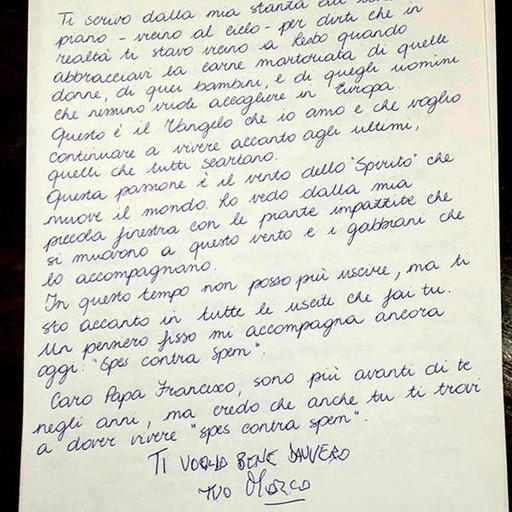 Ti scrivo dalla mia stanza
piano - vicino al cielo - per dirti che in
realtà ti stavo vicino a Lesbo quando
abbracciavi la carne martoriata di quelle
donne, di quei bambini, e di quegli uomini
che nessuno vuole accogliere in Europa.
Questo è il Vangelo che io amo e che voglio
continuare a vivere accanto agli ultimi,
quelli che tutti scartano.
Questa passione è il vento dello "Spirito" che
muove il mondo. Lo vedo dalla mia
piccola finestra con le piante impazzite che
si muovono a questo vento e i gabbiani che
lo accompagnano.
In questo tempo non posso più uscire, ma ti
sto accanto in tutte le uscite che fai tu.
Un pensiero fisso mi accompagna ancora
oggi: "Spes contra Spem".
Caro Papa Francesco, sono più avanti di te
negli anni, ma credo che anche tu ti trovi
a dover vivere "spes contra spem".
TI VOGLIO BENE DAVVERO
TUO Marco